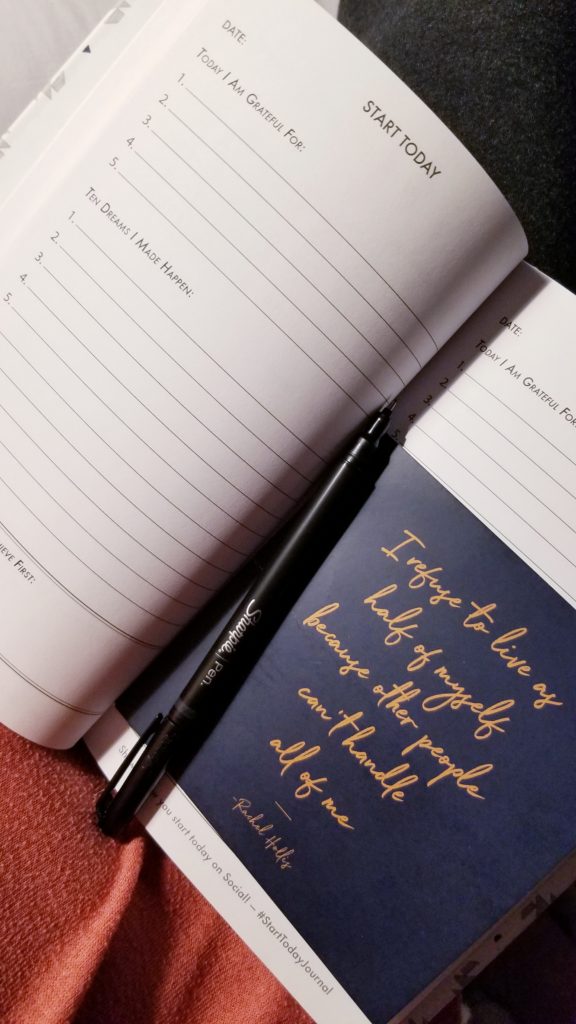 START TODAY
DATE:
TODAY I AM GRATEFUL FOR:
1.
2.
3.
4.
5.
TEN DREAMS I MADE HAPPEN:
1.
2.
3.
4.
5.
FIRST:
DATE:
TODAY I AM GRATEFUL FOR:
1.
2.
3.
4.
5.
Sharpie. Pen.
I refuse to live as
half of myself
because other people
can't handle
all of me
—
-Rachel Hollis
you start today on Social! — #StartTodayJournal